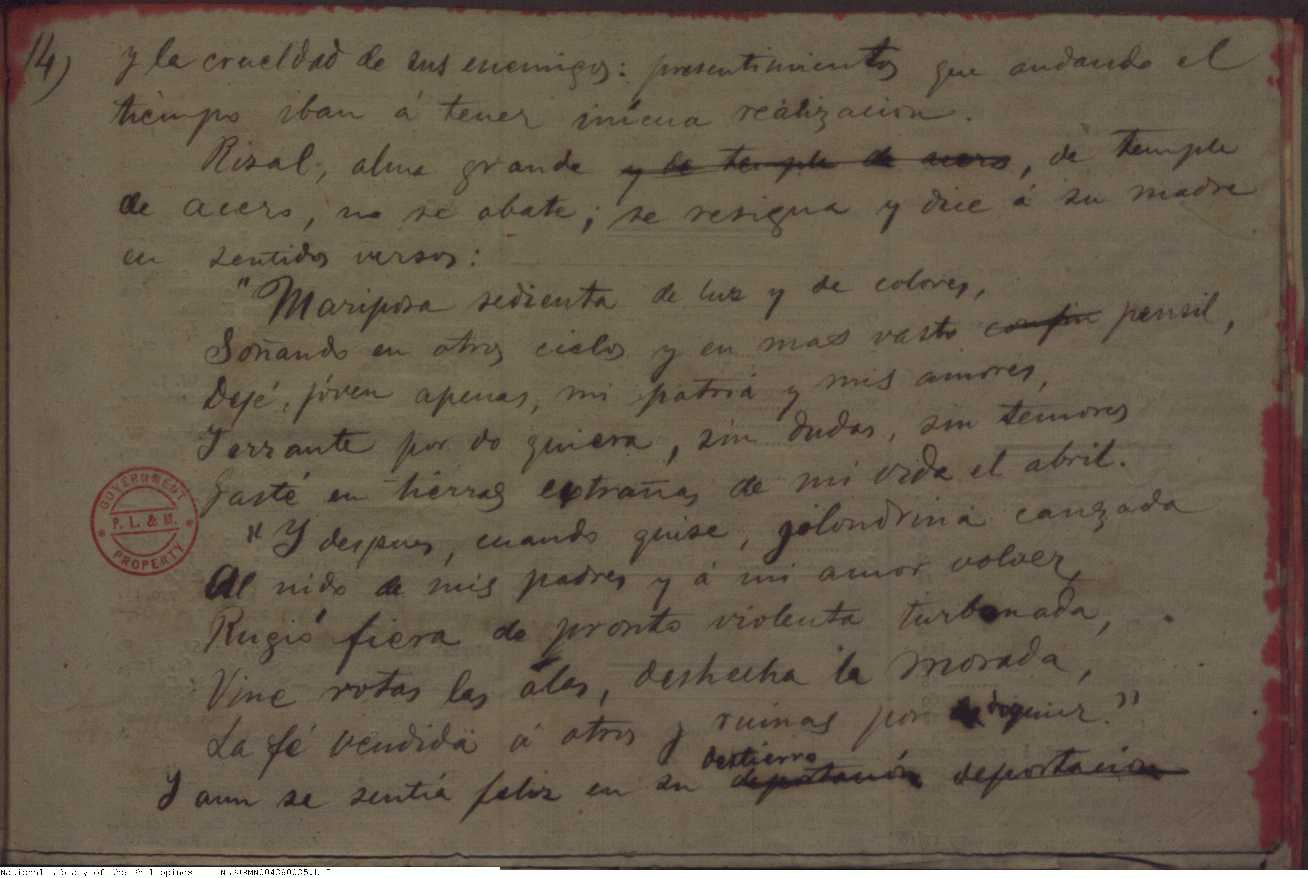 14)
y la crueldad de sus enemigos: presentimientos que andando el
tiempo iban á tener inícua realizacion.
Rizal, alma grande y de temple de acero, de temple
de acero, no se abate; se resigna y dice á su madre
en sentidos versos:
"Mariposa sedienta de luz y de colores,
Soñando en otros cielos y en mas vasto confin pensil,
Dejé, jóven apenas, mi patria y mis amores,
Y errante por do quiera, sin dudas, sin temores
Gasté en tierras extrañas de mi vida el abril.
"Y despues, cuando quise, golondrina canzada
Al nido de mis padres y á mi amor volver,
Rugió fiera de pronto violenta turbonada,
Vine rotas las alas, deshecha la morada,
La fé vendida á otros y ruinas por doquier."
destierro
Y aun se sentia feliz en su deportación deportacion
GOVERNMENT
P. L. & M.
PROPERTY
National Library of the Philippines